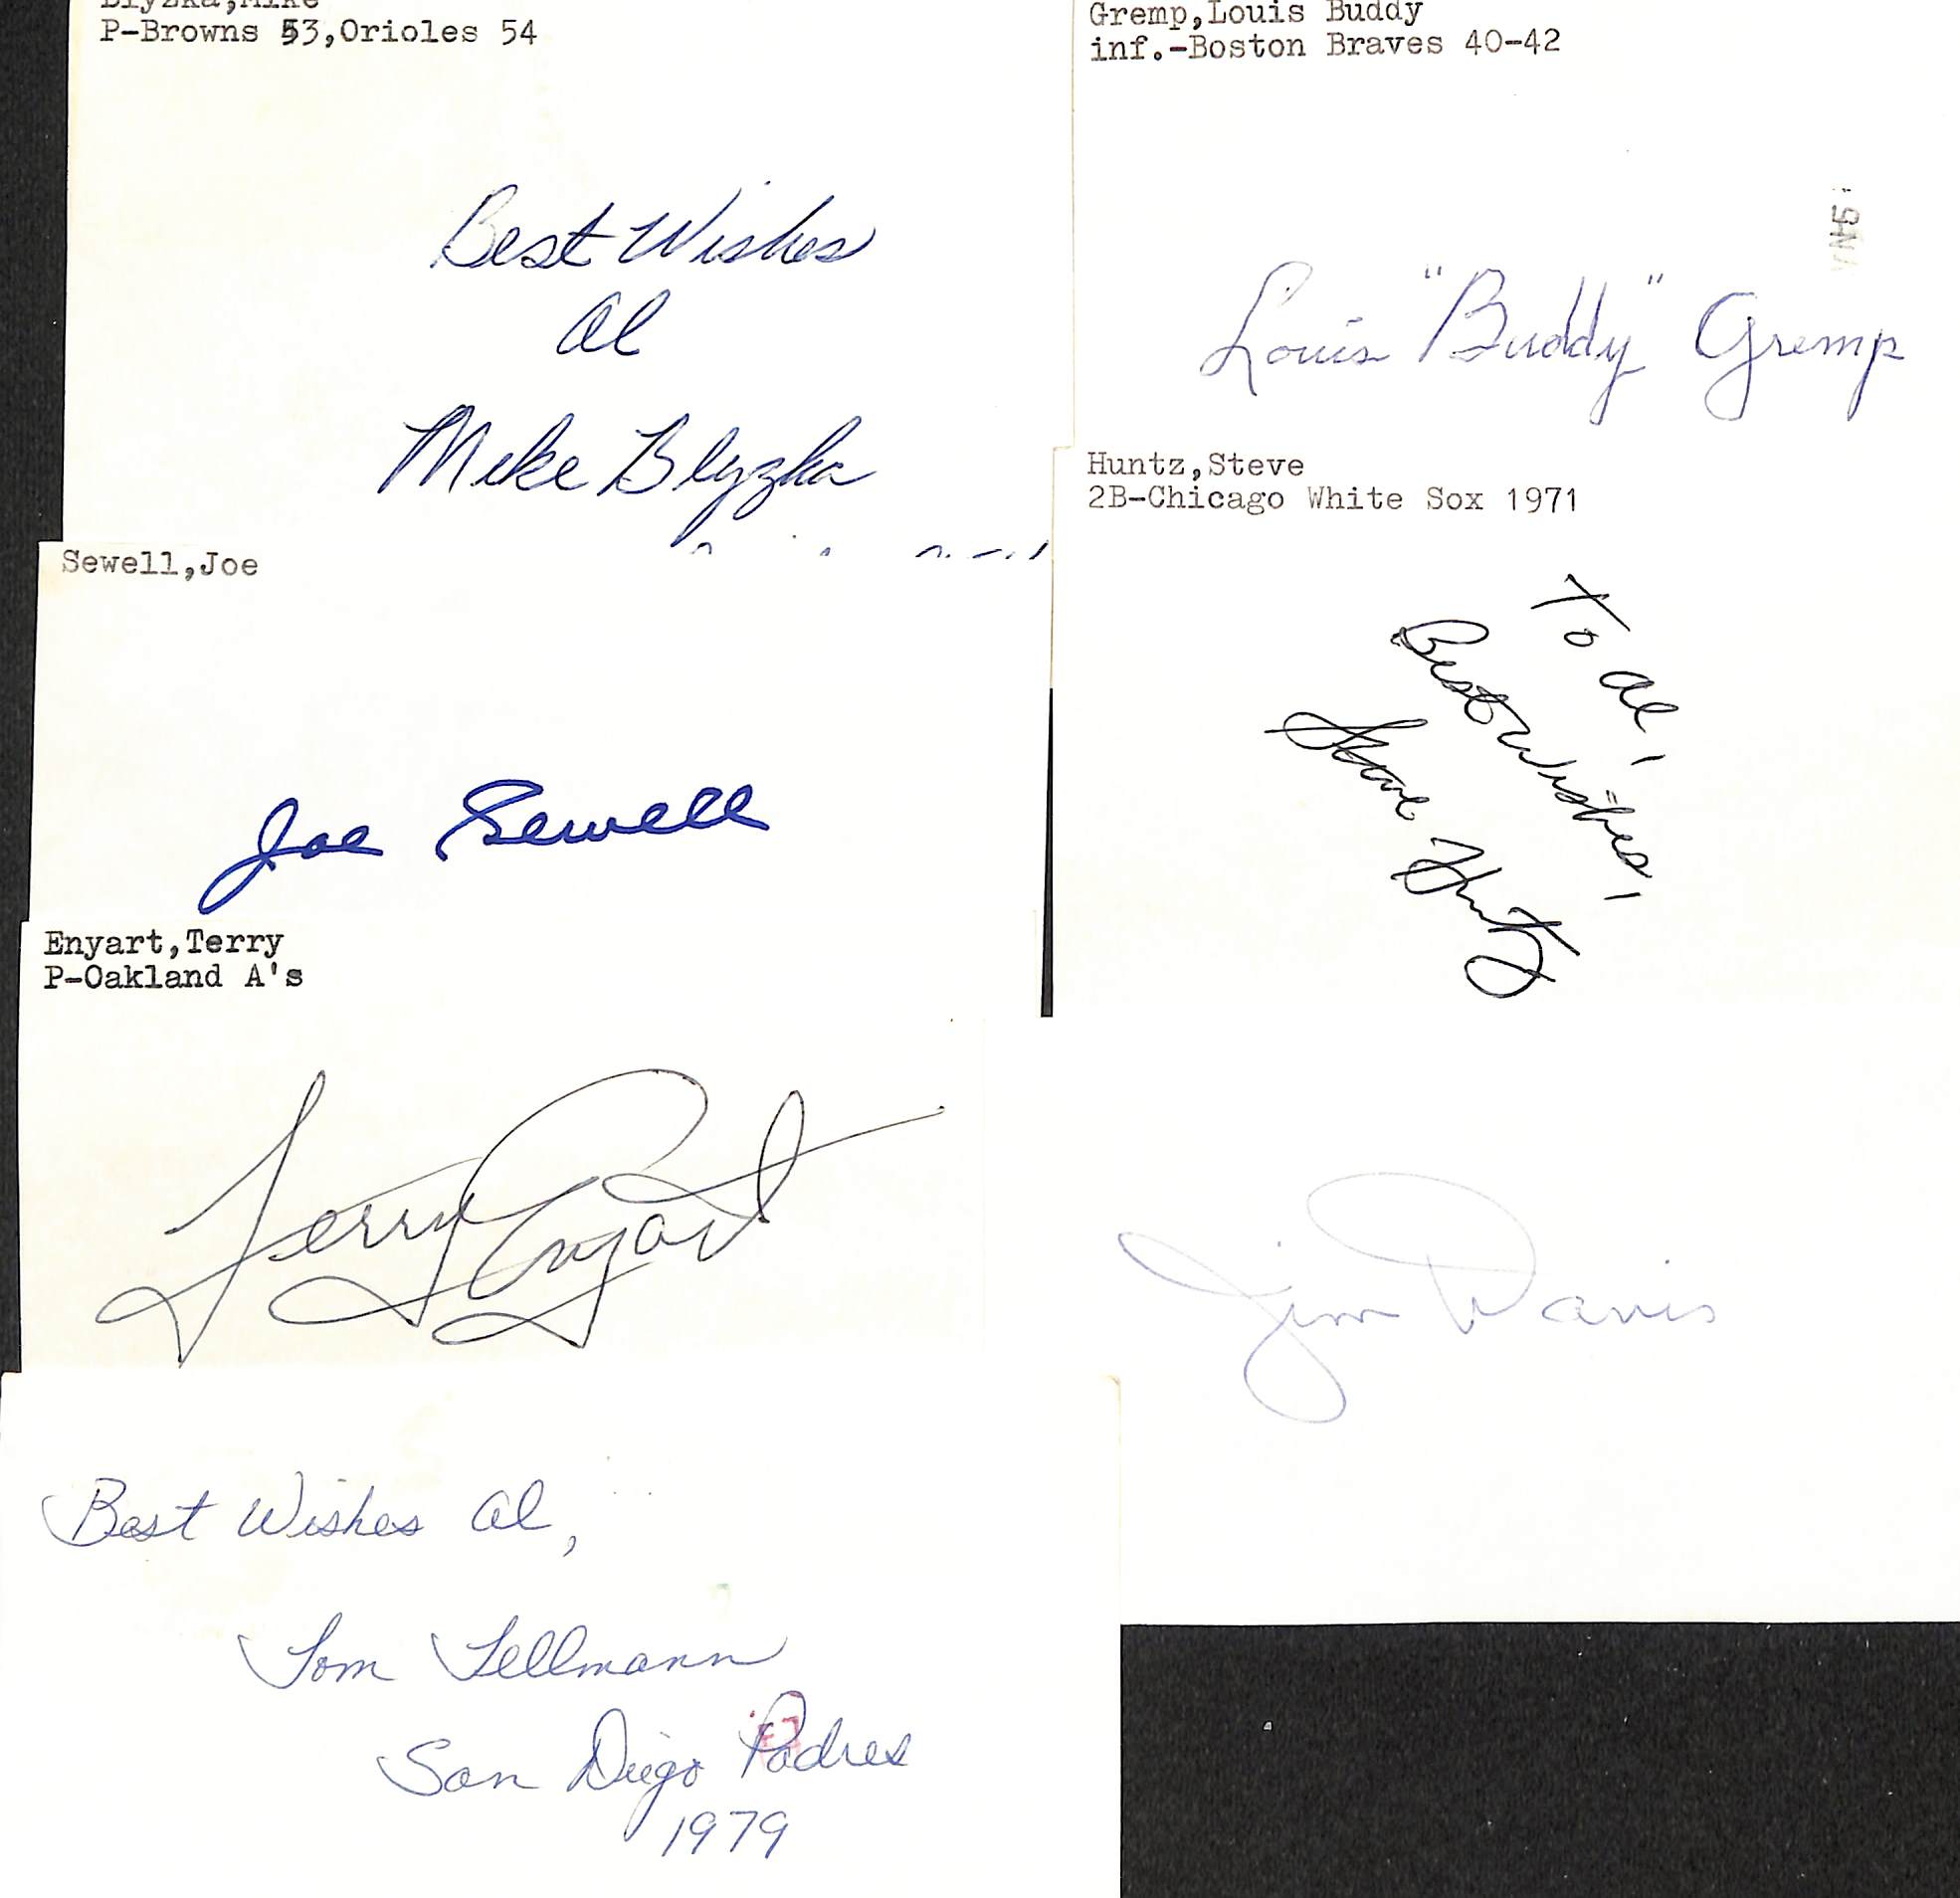 Blyzka,Mike
P-Browns 53,Orioles 54
Best Wishes
Al
Mike Blyzka
Sewell,Joe
Joe Sewell
Enyart,Terry
P-Oakland A's
Terry Enyart
Best Wishes Al,
Tom Tellmann
San Diego Padres
1979
Gremp,Louis Buddy
inf.-Boston Braves 40-42
Louis "Buddy" Gremp
Huntz,Steve
2B-Chicago White Sox 1971
To Al,
Best Wishes,
Steve Huntz
Jim Davis